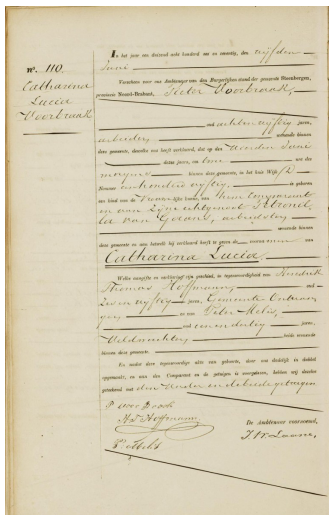 N°. 110.
Catharina
Lucia
Voorbraak
In het jaar een duizend acht honderd een en zeventig, den vijfden
Juni
Verscheen voor ons Ambtenaar van den Burgerlijken stand der gemeente Steenbergen,
provincie Noord-Brabant, Pieter Voorbraak,
oud achtenvijftig jaren,
arbeider, wonende binnen
deze gemeente, dewelke ons heeft verklaard, dat op den vierden Juni
dezes jaars, ten een ure des
morgens binnen deze gemeente, in het huis Wijk
Nummer
een kind van de Vrouwelijke kunne, van hem comparant
en van zijne echtgenoot Petronel
la van Gaans, arbeidster
wonende binnen
deze gemeente en aan hetwelk hij verklaard heeft te geven de voornamen van
Catharina Lucia.
Welke aangifte en verklaring zijn geschied, in tegenwoordigheid van
Thomas Hoffmann, oud
jaren, Gemeente Ontvan
ger, en van Pieter Melis,
oud jaren,
Veldwachter, beide wonende
binnen deze gemeente.
En nadat deze tegenwoordige akte van geboorte, door ons duidelijk in dubbel
opgemaakt, en aan den Comparant en de getuigen is voorgelezen, hebben wij dezelve
geteekend met den Vader en de beide getuigen
P voorbraak
H.T. Hoffmann
P Melis
De Ambtenaar voornoemd,